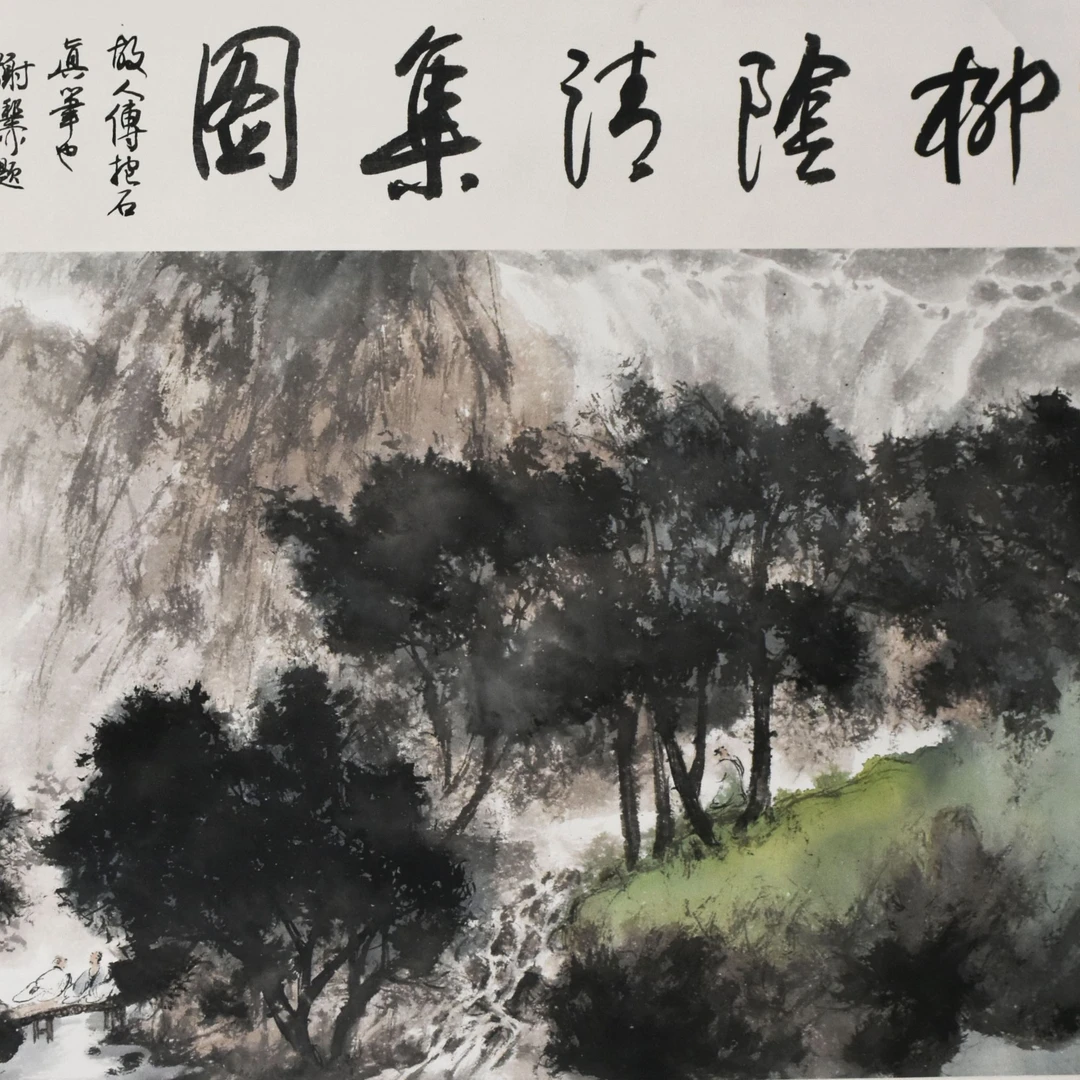 柳陰清集圖
故人傅抱石
真筆也
謝稚題